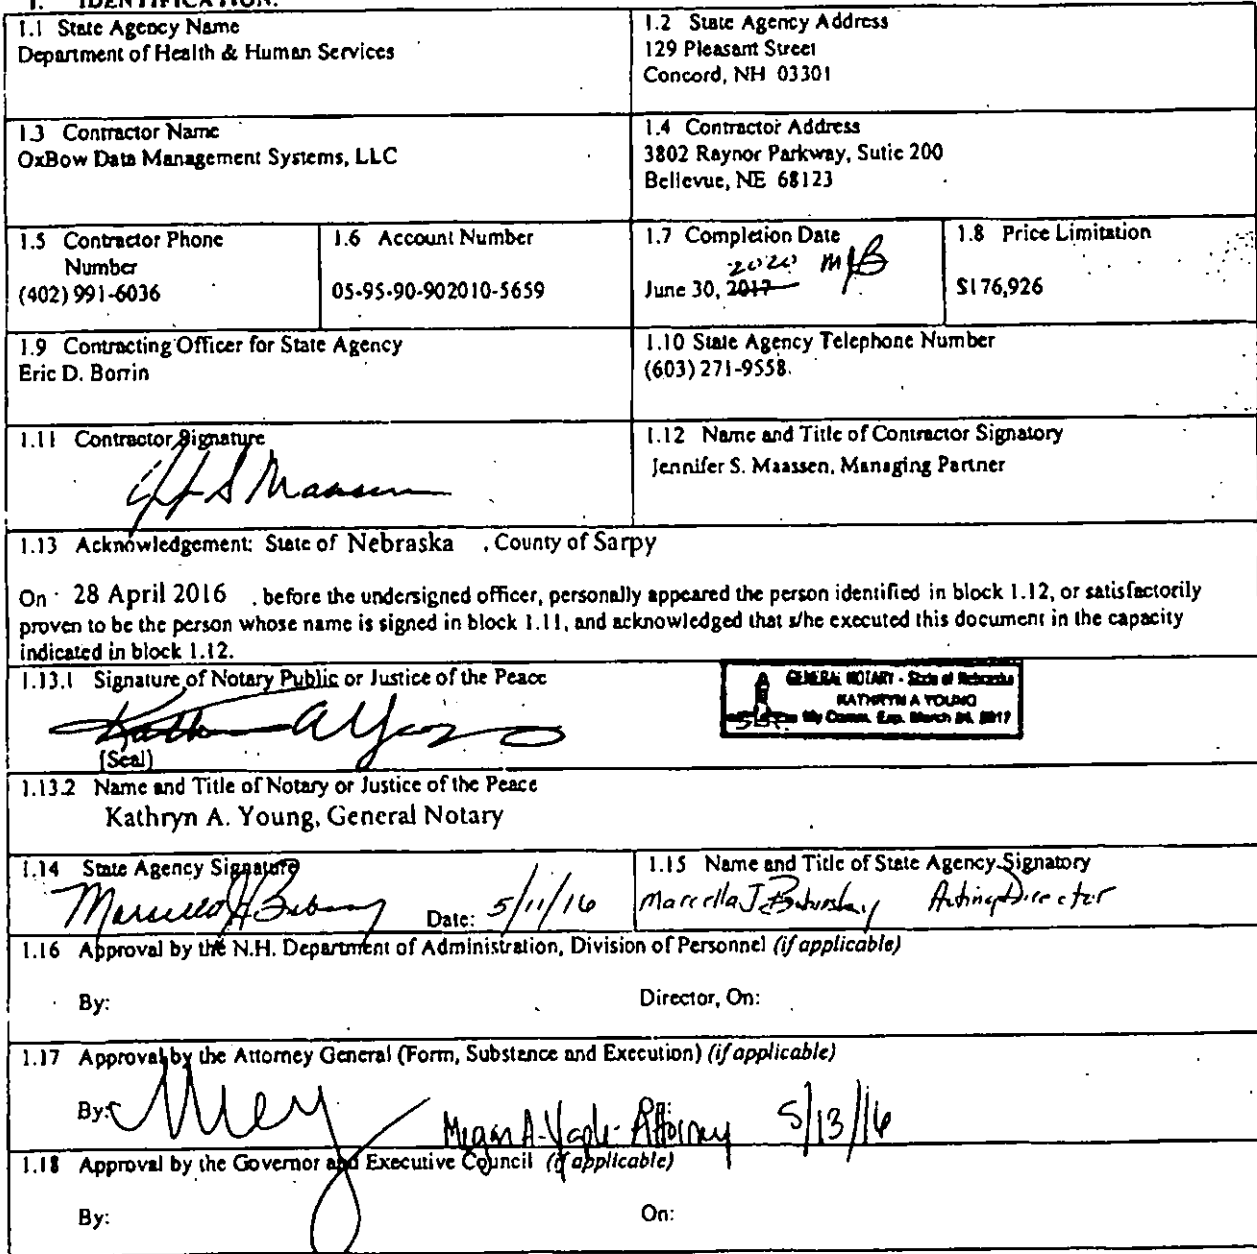 1. IDENTIFICATION.
1.1 State Agency Name
Department of Health & Human Services
1.2 State Agency Address
129 Pleasant Street
Concord, NH 03301
1.3 Contractor Name
OxBow Data Management Systems, LLC
1.4 Contractor Address
3802 Raynor Parkway, Sutie 200
Bellevue, NE 68123
1.5 Contractor Phone
Number
(402) 991-6036
1.6 Account Number
05-95-90-902010-5659
1.7 Completion Date
2020 MJB
June 30, 2017
1.8 Price Limitation
$176,926
1.9 Contracting Officer for State Agency
Eric D. Borrin
1.10 State Agency Telephone Number
(603) 271-9558
1.11 Contractor Signature
S Maassen
1.12 Name and Title of Contractor Signatory
Jennifer S. Maassen, Managing Partner
1.13 Acknowledgement: State of Nebraska , County of Sarpy
On 28 April 2016 , before the undersigned officer, personally appeared the person identified in block 1.12, or satisfactorily
proven to be the person whose name is signed in block 1.11, and acknowledged that s/he executed this document in the capacity
indicated in block 1.12.
1.13.1 Signature of Notary Public or Justice of the Peace
GENERAL NOTARY - State of Nebraska
KATHRYN A YOUNG
My Comm. Exp. March 24, 2017
Kathryn A Young
[Seal]
1.13.2 Name and Title of Notary or Justice of the Peace
Kathryn A. Young, General Notary
1.14 State Agency Signature
Date: 5/11/16
1.15 Name and Title of State Agency Signatory
Marcella J. Bobinsky Acting Director
1.16 Approval by the N.H. Department of Administration, Division of Personnel (if applicable)
By: Director, On:
1.17 Approval by the Attorney General (Form, Substance and Execution) (if applicable)
By: On:
Megan A. Yaple - Attorney 5/13/16
1.18 Approval by the Governor and Executive Council (if applicable)
By: On: